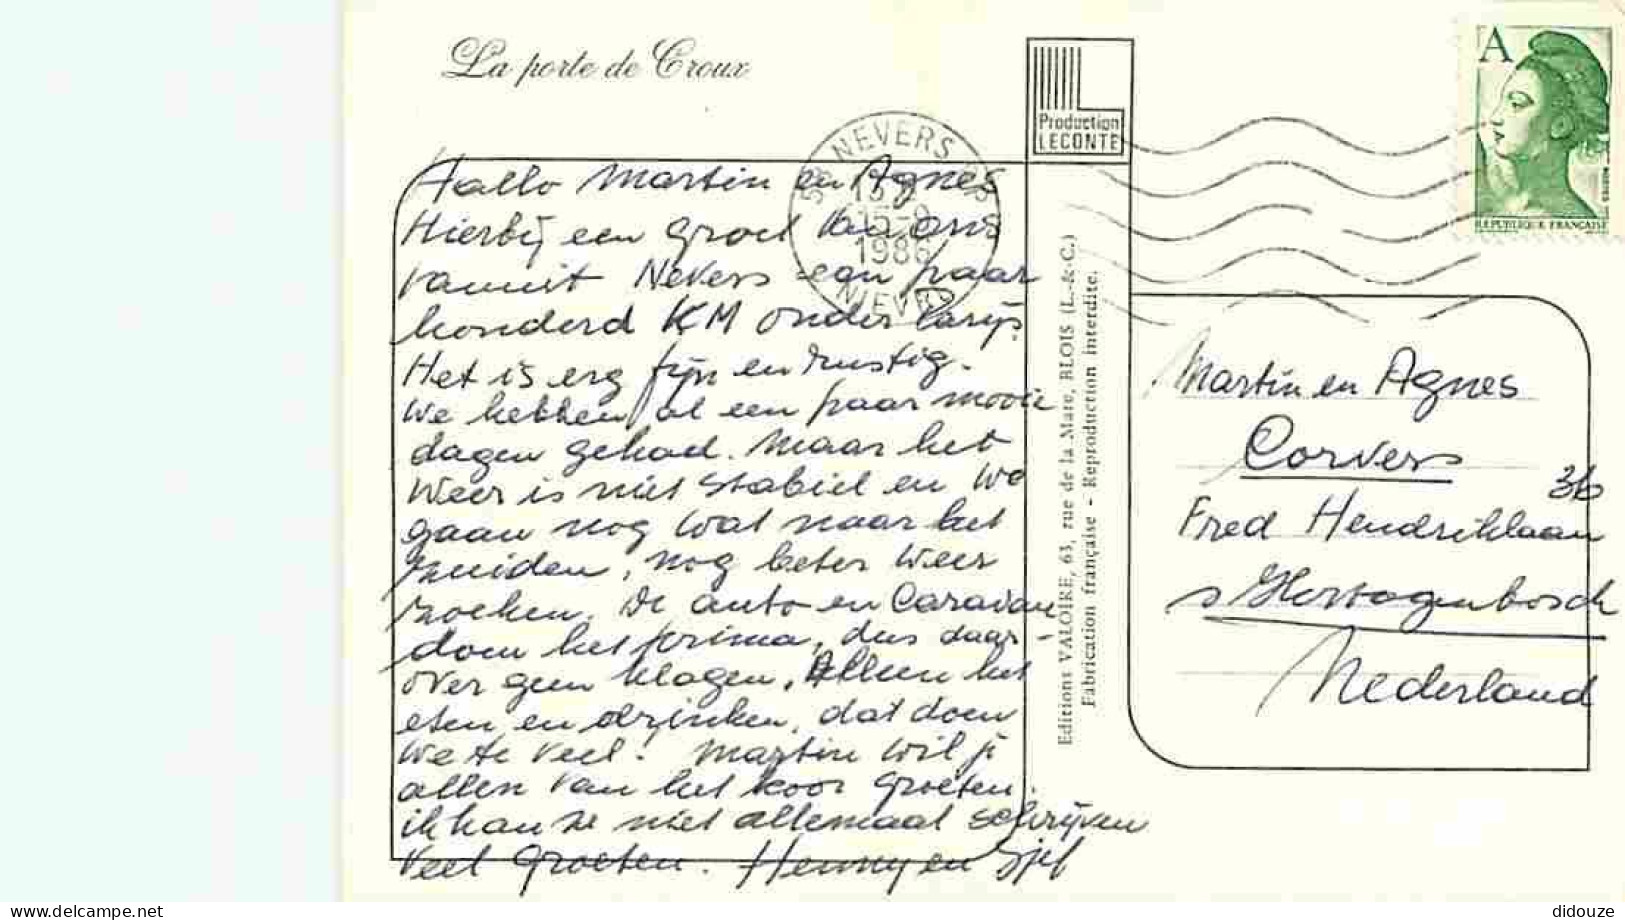 La porte de Croux
Production
LECONTE
A
REPUBLIQUE FRANÇAISE
58 NEVERS
1986
NIEVRE
Hallo Martin en Agnes
Hierbij een groet van ons
vanuit Nevers een paar
honderd KM onder Parijs.
Het is erg fijn en rustig.
We hebben al een paar mooie
dagen gehad. Maar het
Weer is niet stabiel en we
gaan nog wat naar het
zuiden, nog beter weer
zoeken. De auto en Caravan
doen het prima, dus daar-
over geen klagen. Alleen het
eten en drinken, dat doen
we te veel! Martin wil je
allen van het koor groeten.
ik kan ze niet allemaal schrijven
Veel groeten. Henny en Sjef
Editions VALOIRE, 63, rue de la Mare, BLOIS (L.-&-C.)
Fabrication française - Reproduction interdite.
Martin en Agnes
Corvers
36
Fred Hendriklaan
s Hertogenbosch
Nederland
didouze